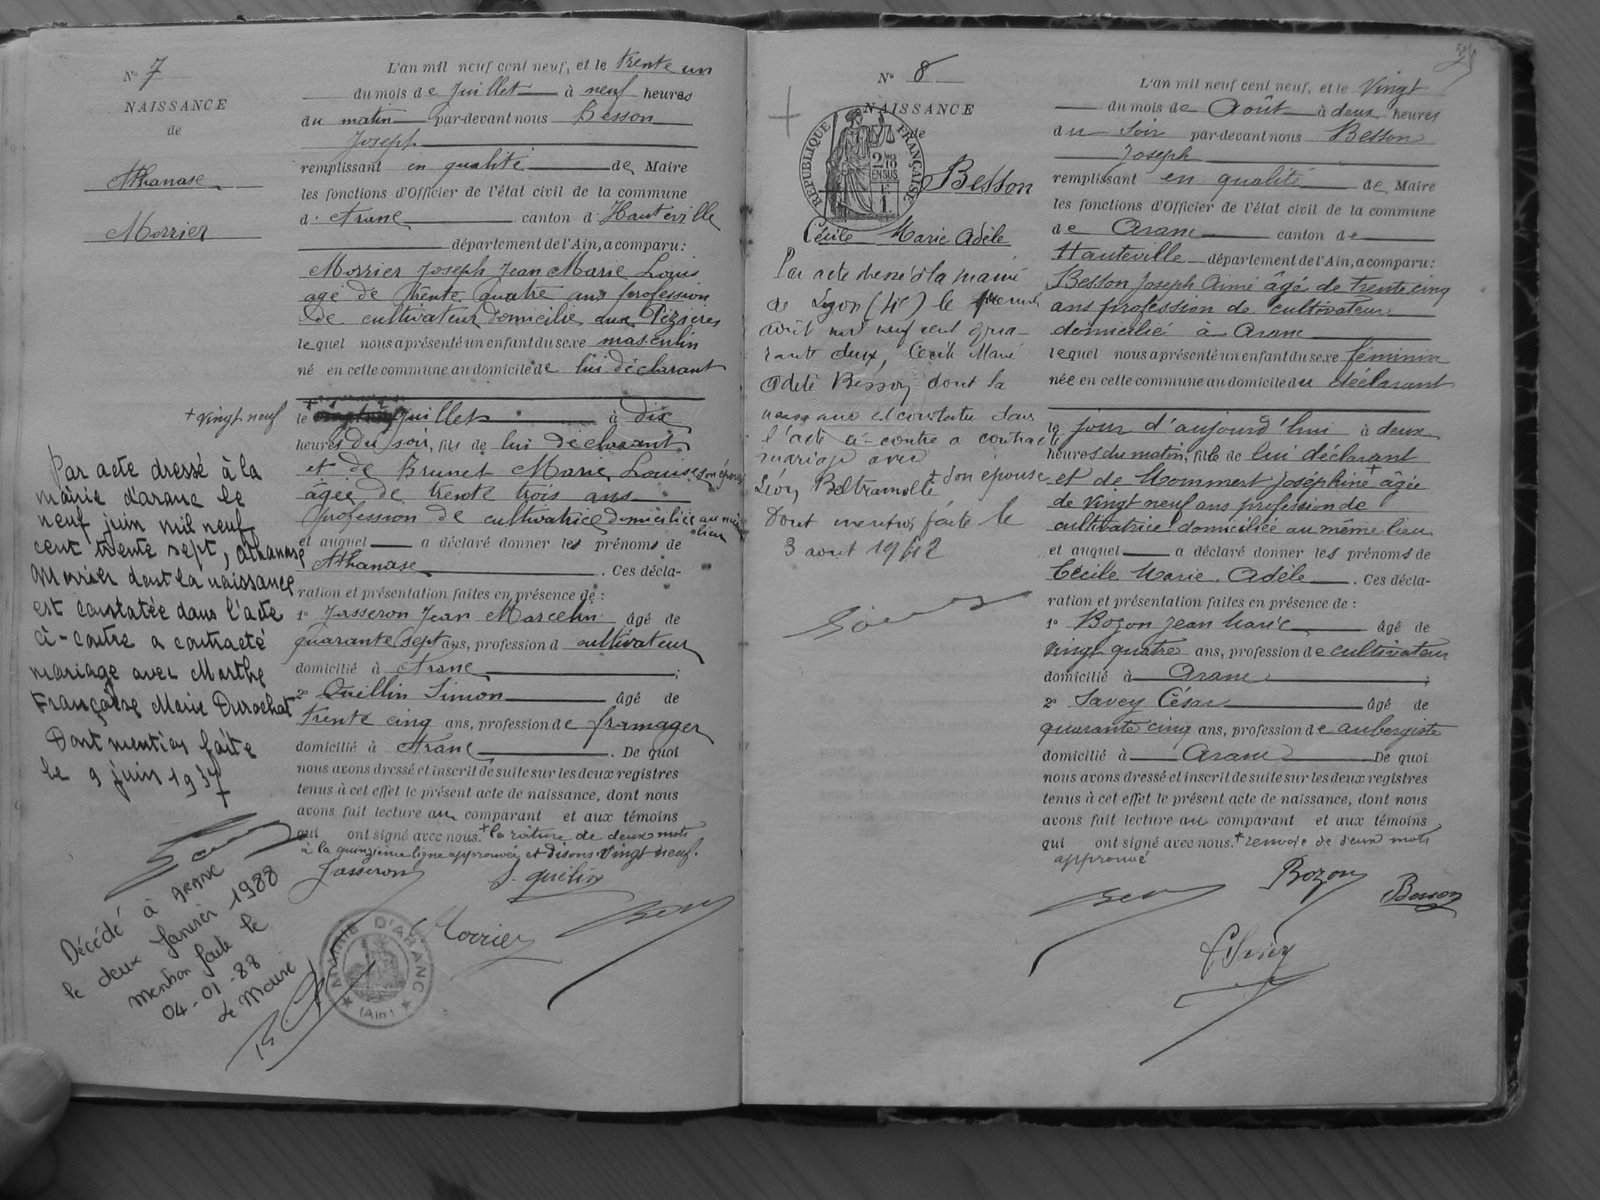 N° 7
NAISSANCE
de
Athanase
Morrier
+ vingt neuf
Par acte dressé à la
mairie d'aranc le
neuf juin mil neuf
cent trente sept, Athanase
Morrier dont la naissance
est constatée dans l'acte
ci-contre a contracté
mariage avec Marthe
Françoise Marie Durochat
Dont mention faite
le 9 juin 1937
Décédé à ARANC
le deux Janvier 1988
Mention faite le
04-01-88
le Maire
L'an mil neuf cent neuf, et le trente un
du mois de Juillet à neuf heures
du matin par-devant nous Besson
Joseph
remplissant en qualité de Maire
les fonctions d'Officier de l'état civil de la commune
d'Aranc canton d'Hauteville
département de l'Ain, a comparu:
Morrier Joseph Jean Marie Louis
agé de trente quatre ans profession
de cultivateur domicilié aux Pézières
lequel nous a présenté un enfant du sexe masculin
né en cette commune au domicile de lui déclarant
le juillet à dix
heures du soir, fils de lui déclarant
et de Brunet Marie Louise son épouse
âgée de trente trois ans
profession de cultivatrice domiciliée au même lieu
et auquel a déclaré donner les prénoms de
Athanase. Ces décla-
ration et présentation faites en présence de :
1° Jasseron Jean Marcelin âgé de
quarante sept ans, profession d cultivateur
domicilié à Aranc ;
2° Quillin Simon âgé de
trente cinq ans, profession de fromager
domicilié à Aranc. De quoi
nous avons dressé et inscrit de suite sur les deux registres
tenus à cet effet le présent acte de naissance, dont nous
avons fait lecture au comparant et aux témoins
qui ont signé avec nous. + la râture de deux mots
à la quinzième ligne approuvée et disons vingt neuf.
Jasseron S. Quillin
Morrier
MAIRIE D'ARANC
(Ain)
N° 8
NAISSANCE
de
RÉPUBLIQUE FRANÇAISE
Besson
Cécile Marie Adèle
Par acte dressé à la mairie
de Lyon (4e) le premier
août mil neuf cent qua-
rante deux, Cécile Marie
Adèle Besson dont la
naissance est constatée dans
l'acte ci-contre a contracté
mariage avec
Léon Beltramelli
Dont mention faite le
3 aout 1942
+ son épouse
L'an mil neuf cent neuf, et le vingt
du mois de Août à deux heures
du soir par-devant nous Besson
Joseph
remplissant en qualité de Maire
les fonctions d'Officier de l'état civil de la commune
de Aranc canton de
Hauteville département de l'Ain, a comparu:
Besson Joseph Aimé âgé de trente cinq
ans profession de cultivateur
domicilié à Aranc
lequel nous a présenté un enfant du sexe féminin
née en cette commune au domicile du déclarant
le jour d'aujourd'hui à deux
heures du matin, fille de lui déclarant
et de Mommert Joséphine + âgée
de vingt neuf ans profession de
cultivatrice domiciliée au même lieu
et auquel a déclaré donner les prénoms de
Cécile Marie Adèle. Ces décla-
ration et présentation faites en présence de :
1° Bozon Jean Marie âgé de
vingt quatre ans, profession de cultivateur
domicilié à Aranc ;
2° Savey César âgé de
quarante cinq ans, profession de aubergiste
domicilié à Aranc De quoi
nous avons dressé et inscrit de suite sur les deux registres
tenus à cet effet le présent acte de naissance, dont nous
avons fait lecture au comparant et aux témoins
qui ont signé avec nous. + renvoie de deux mots
approuvé
Bozon
Besson
C Savey